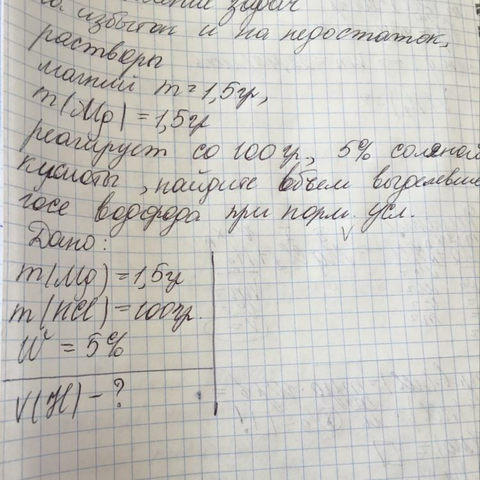 задач
на избыток и на недостаток,
растворы
магний m = 1,5гр,
m(Mg) = 1,5гр
реагирует со 100гр, 5% соляной
кислоты, найдите объем выделевше
госе водорода при норм. усл.
Дано:
m(Mg) = 1,5гр
m(HCl) = 100гр.
W = 5%
V(H) - ?